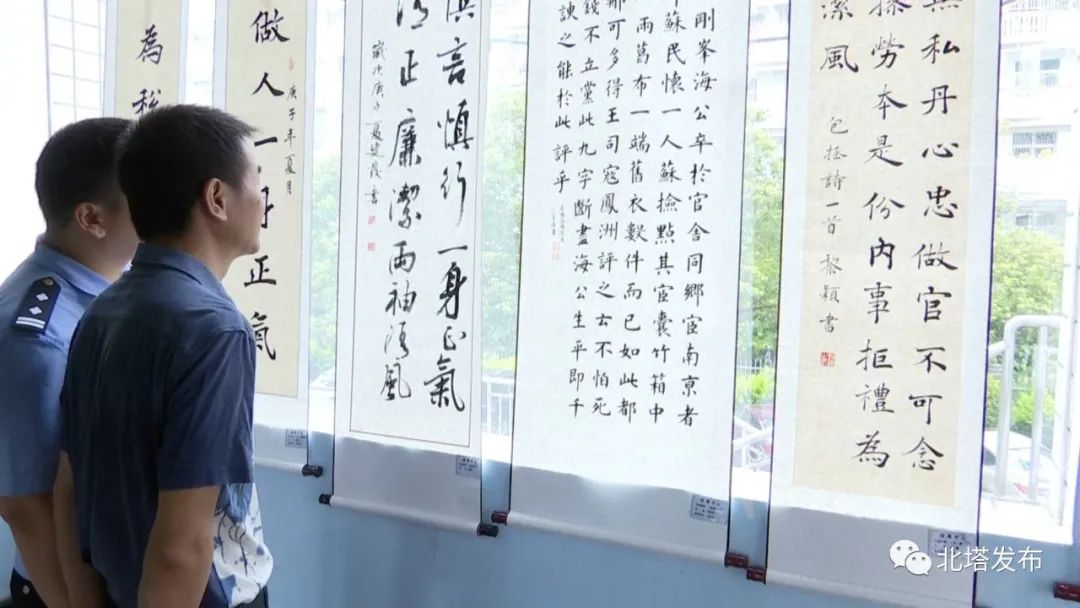 無私丹心忠做官不可念
操勞本是份內事拒禮為
潔風 包拯詩一首 黎穎書
剛峯海公卒於官舍同鄉宦南京者
蘇民懷一人蘇撿點其宦囊竹箱中
兩葛布一端舊衣數件而已如此都
那可多得王司寇鳳洲評之云不怕死
錢不立黨此九字斷盡海公生平即千
諛之能於此評乎
慎言慎行一身正氣
清正廉潔兩袖清風
做人一身正氣
庚子年夏月
為
北塔发布